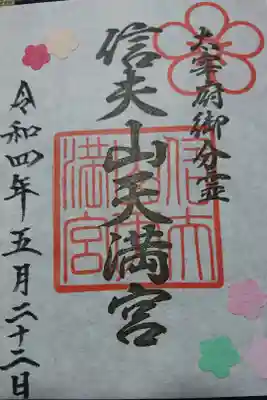 太宰府御分霊
信夫山天満宮
令和四年五月二十二日